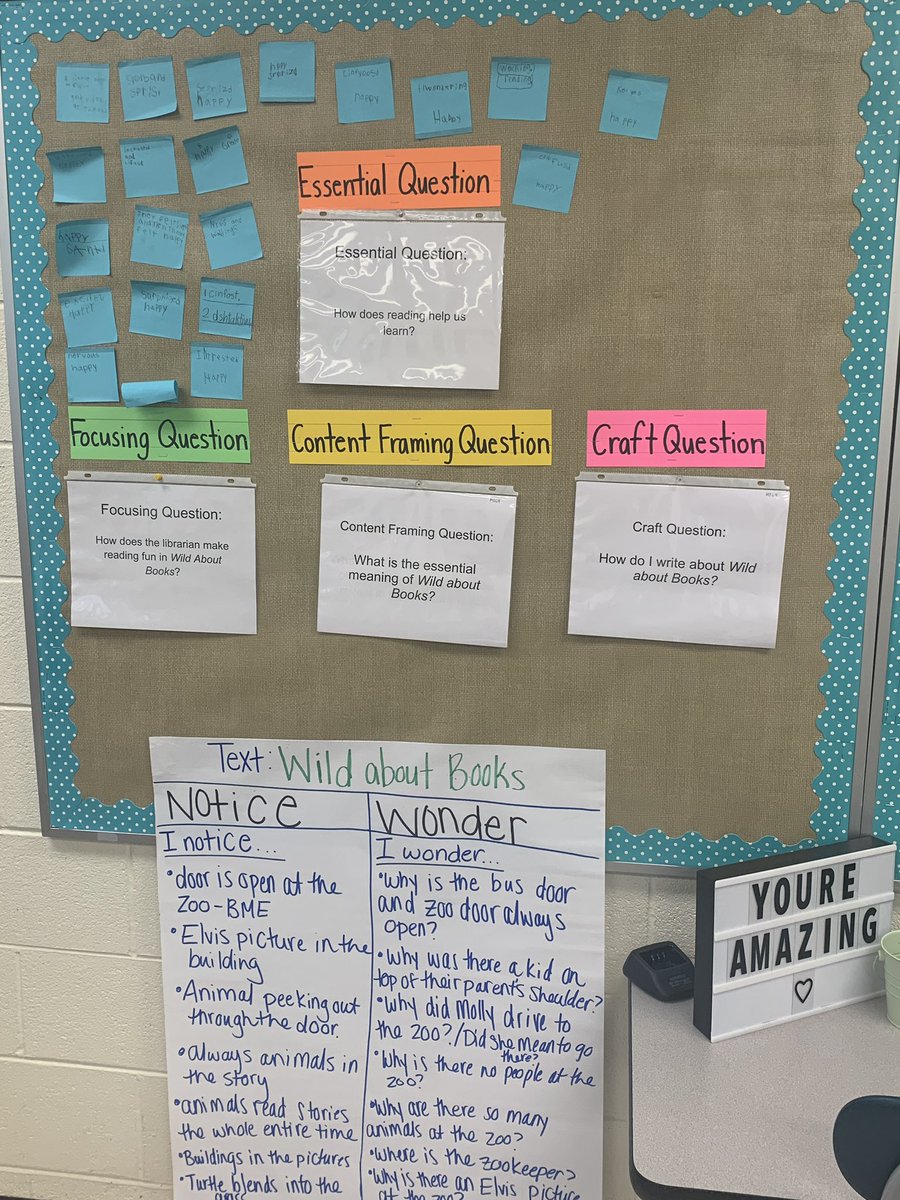 happy
SerRizd
happy
happy
Happy
Working
happy
happy
happy
HAPPY
felt happy
Surprised
happy
2 dshtuktiv
nervous
happy
Interested
Happy
Essential Question
Essential Question:
How does reading help us
learn?
Focusing Question
Content Framing Question
Craft Question
Focusing Question:
How does the librarian make
reading fun in Wild About
Books?
Content Framing Question:
What is the essential
meaning of Wild about
Books?
Craft Question:
How do I write about Wild
about Books?
Text: Wild about Books
Notice
I notice...
•door is open at the
Zoo-BME
•Elvis picture in the
building
•Animal peeking out
through the door.
•always animals in
the story
•animals read stories
the whole entire time
•Buildings in the pictures
•Turtle blends into the
Wonder
I wonder...
•Why is the bus door
and zoo door always
open?
•Why was there a kid on
top of their parent's shoulder?
•Why did Molly drive to
the zoo?/Did she mean to go
there?
•Why is there no people at the
zoo?
•Why are there so many
animals at the zoo?
•Where is the zookeeper?
•Why is there an Elvis picture
at the zoo?
YOURE
AMAZING